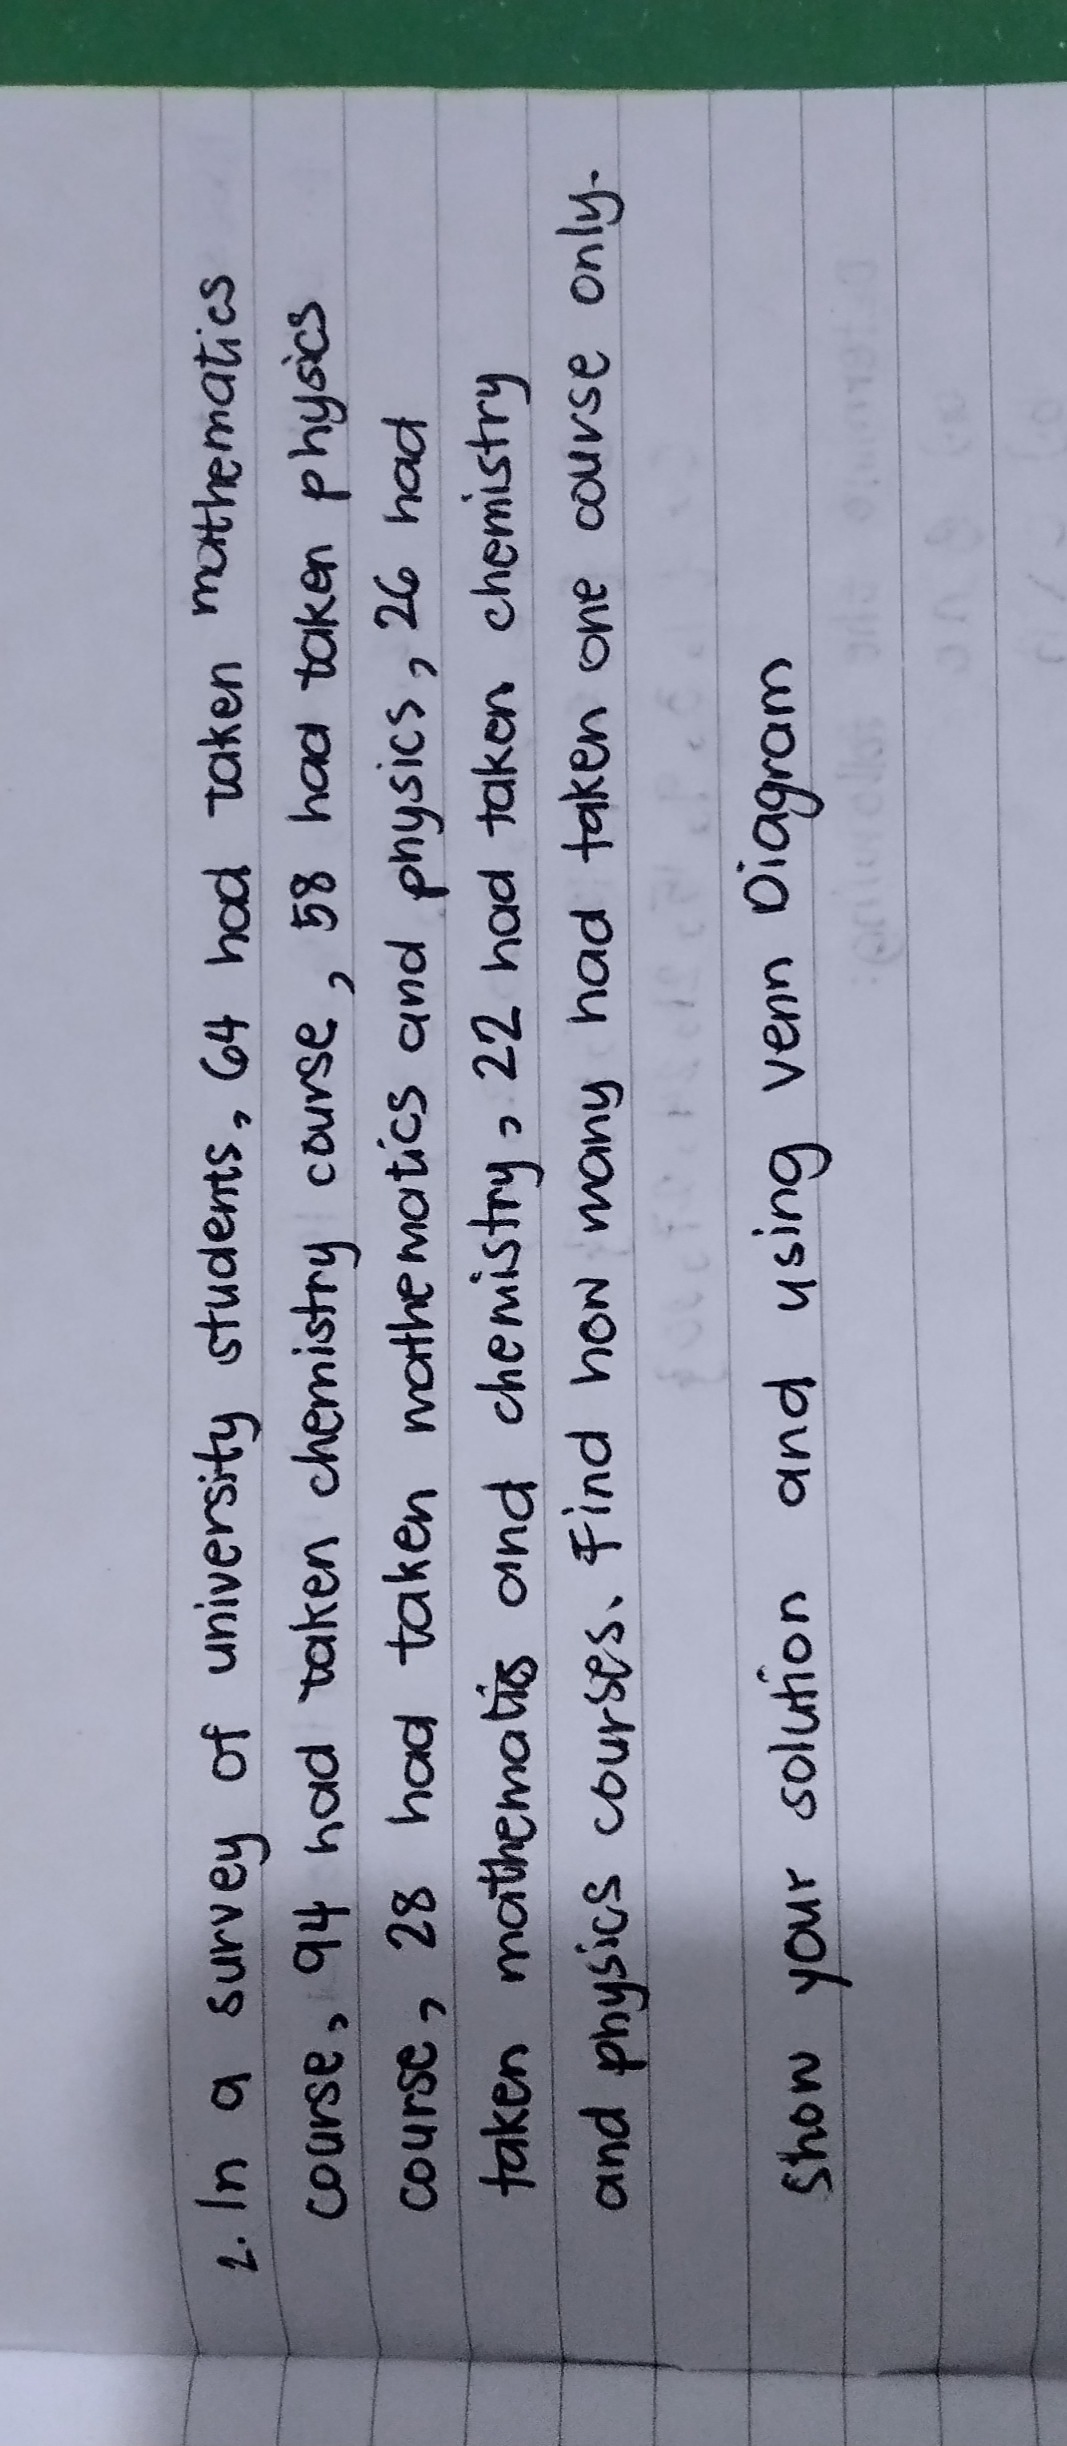 2. In a survey of university students, 64 had taken mathematics
course, 94 had taken chemistry course, 58 had taken physics
course, 28 had taken mathematics and physics, 26 had
taken mathematics and chemistry, 22 had taken chemistry
and physics courses. Find how many had taken one course only.
Show your solution and using Venn Diagram